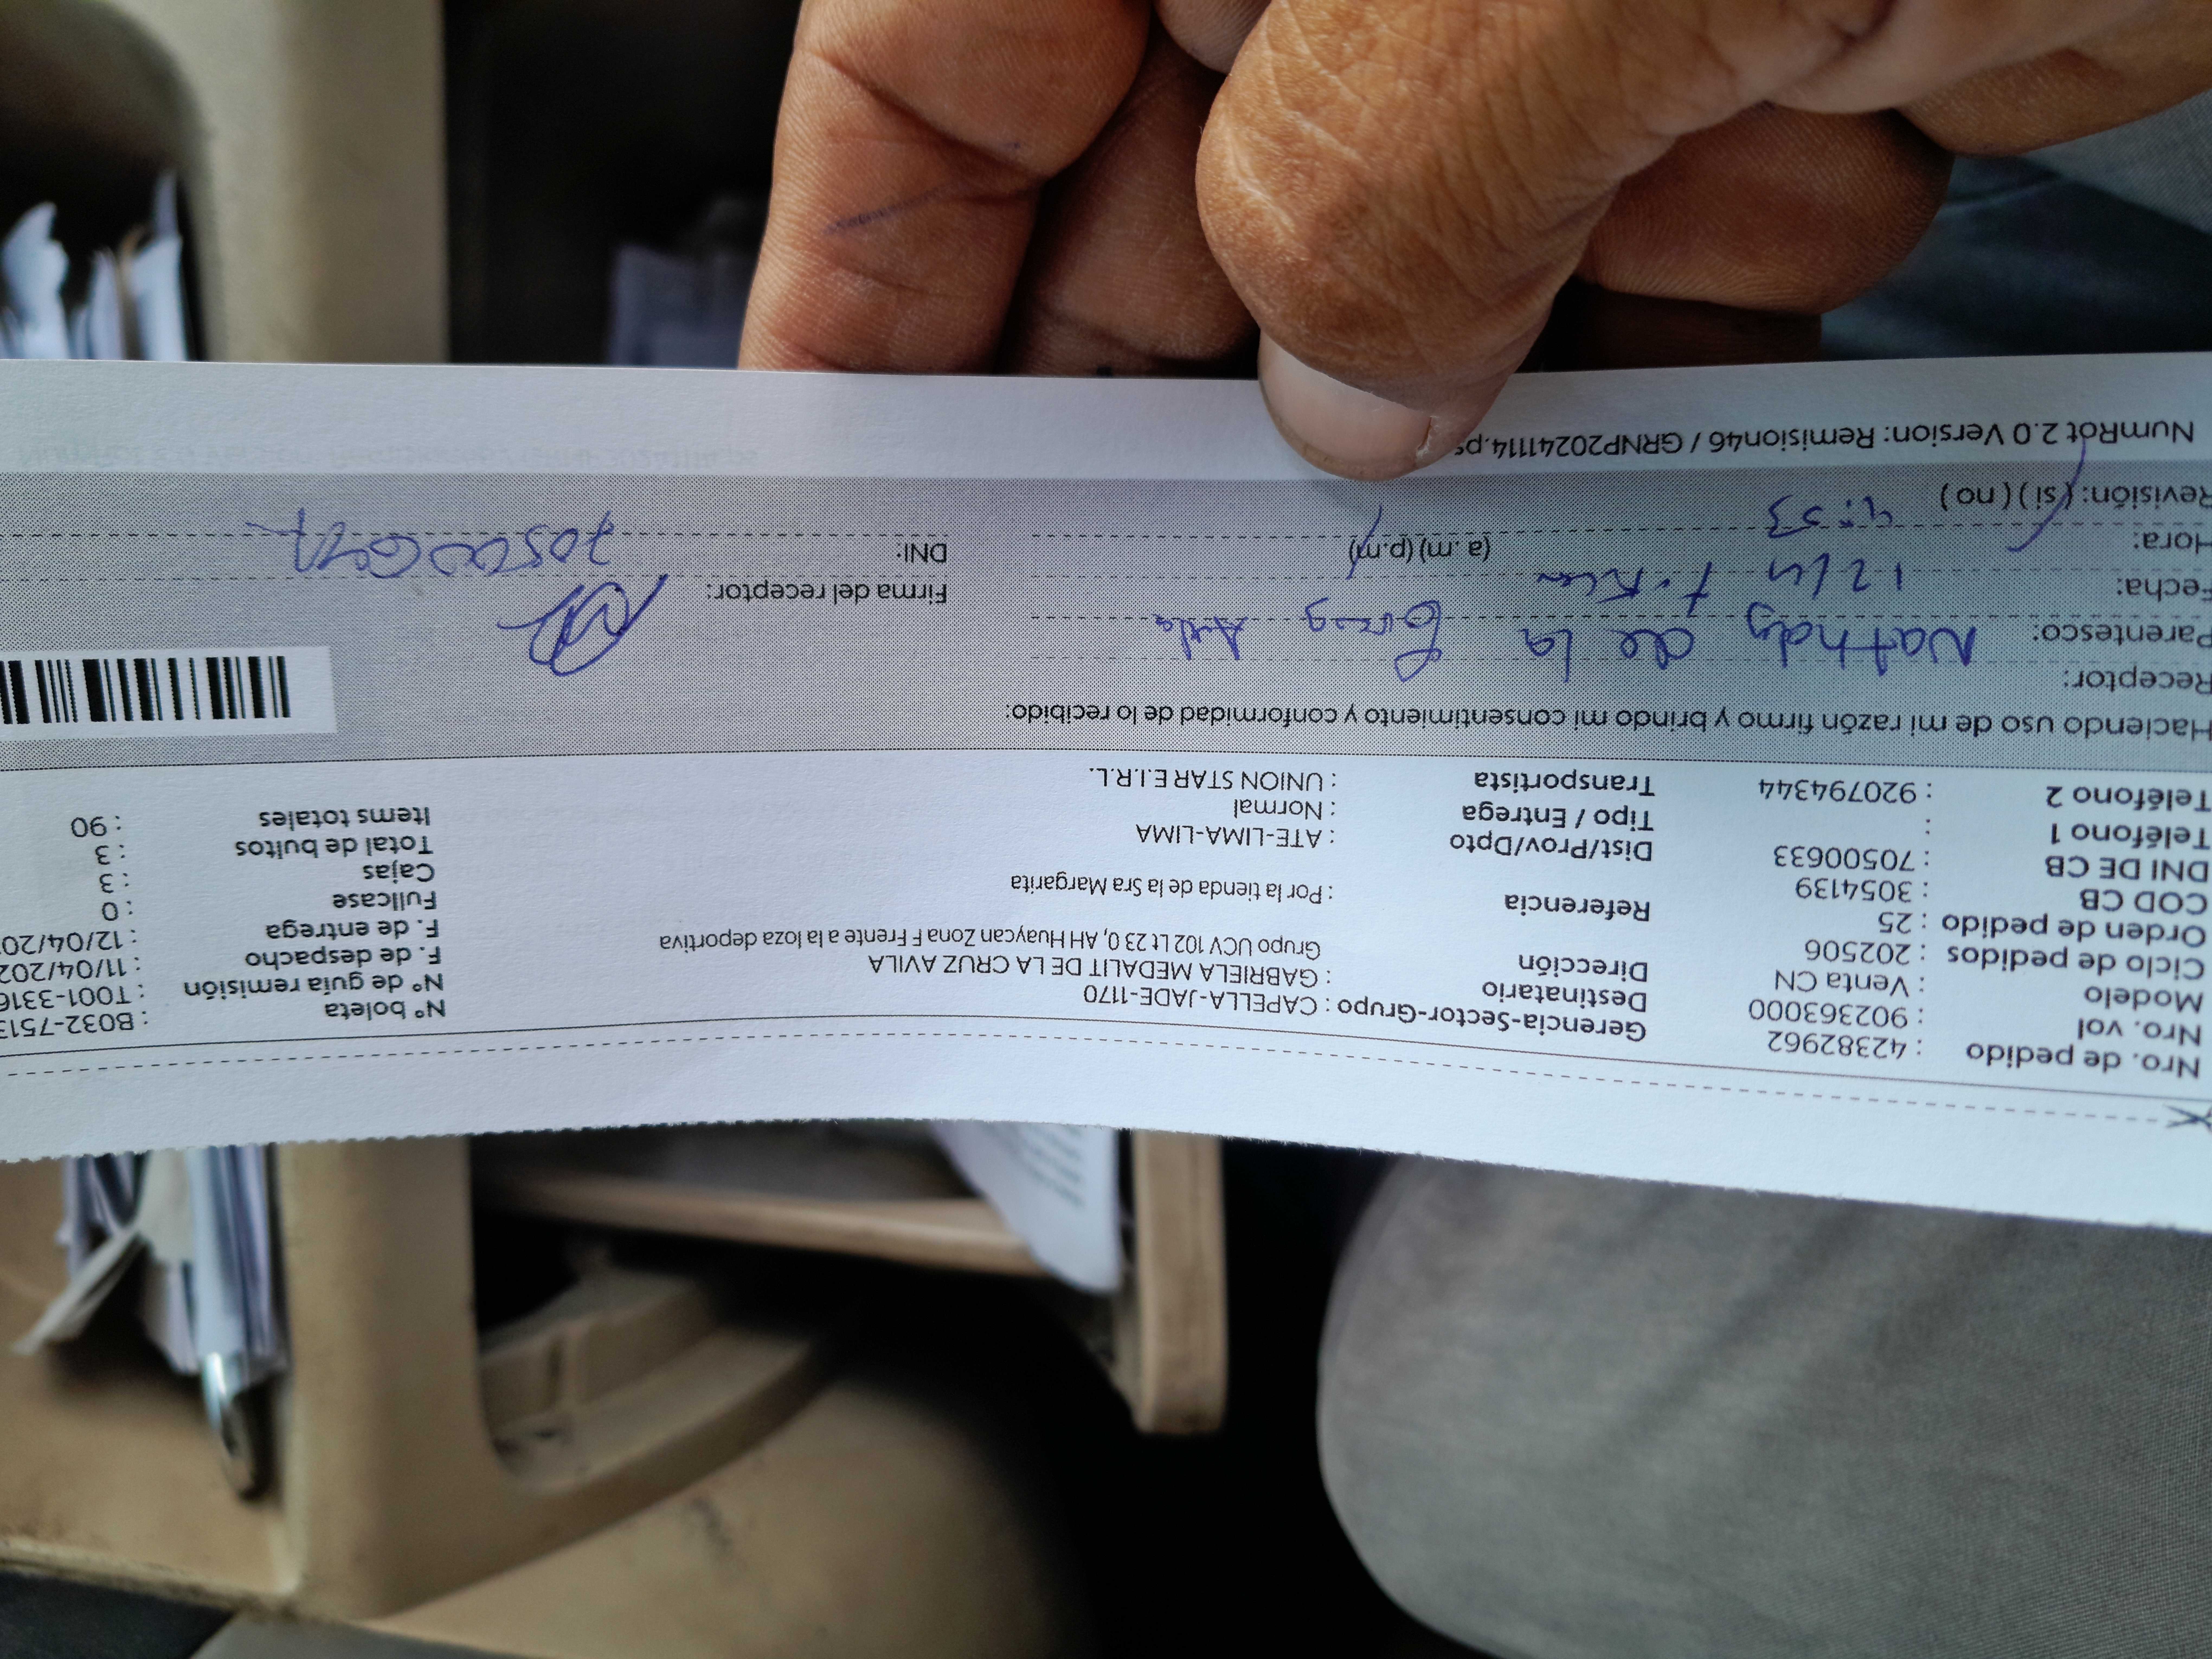 Nro. de pedido : 42382962 Gerencia-Sector-Grupo : CAPELLA-JADE-1170 N° boleta : B032-7513
Nro. vol : 902363000 Destinatario : GABRIELA MEDALIT DE LA CRUZ AVILA N° de guía remisión : T001-3316
Modelo : Venta CN Dirección Grupo UCV 102 Lt 23 0, AH Huaycan Zona F Frente a la loza deportiva F. de despacho : 11/04/202
Ciclo de pedidos : 202506 F. de entrega : 12/04/20
Orden de pedido : 25 Referencia : Por la tienda de la Sra Margarita Fullcase : 0
COD CB : 3054139 Cajas : 3
DNI DE CB : 70500633 Dist/Prov/Dpto : ATE-LIMA-LIMA Total de bultos : 3
Teléfono 1 : Tipo / Entrega : Normal Items totales : 90
Teléfono 2 : 920794344 Transportista : UNION STAR E.I.R.L.
Haciendo uso de mi razón firmo y brindo mi consentimiento y conformidad de lo recibido:
Receptor: Nathaly de la
Parentesco:
Fecha: 12/4 Firma del receptor:
Hora: 4:53 (a.m) (p.m) DNI:
Revisión: (si) (no)
NumRot 2.0 Version: Remision46 / GRNP20241114.ps